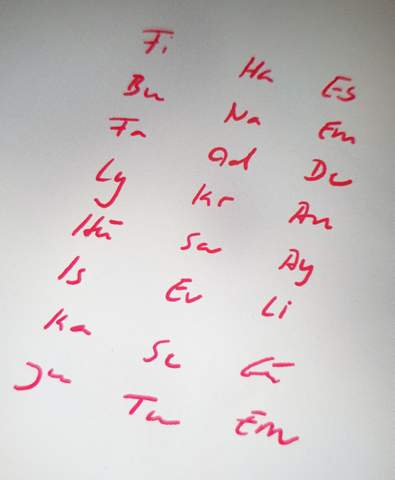 Fi Ha Es
Bu Na Em
Fa Ad Du
Ly Kr An
Hü Sa Ay
Is Ev Li
Ka Se
Ju Tu Em